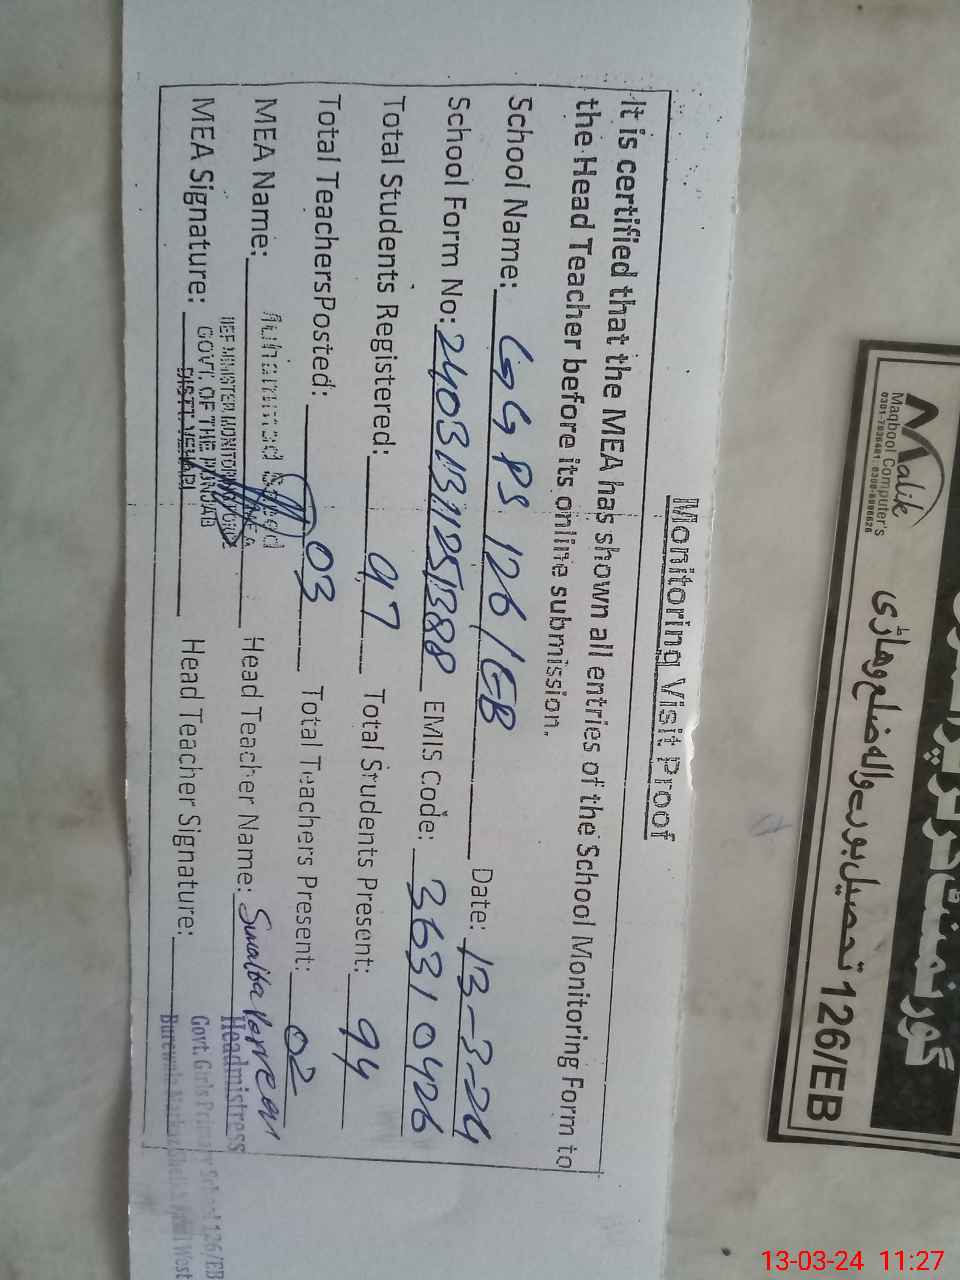 Monitoring Visit Proof
It is certified that the MEA has shown all entries of the School Monitoring Form to
the Head Teacher before its online submission.
School Name: GGPS 126/EB Date: 13-3-24
School Form No: 24031311251388 EMIS Code: 36310426
Total Students Registered: 97 Total Students Present: 94
Total TeachersPosted: 03 Total Teachers Present: 02
MEA Name: Muhammad Head Teacher Name:
IEF MINISTER MONITORING FORCE
MEA Signature: Head Teacher Signature:
GOVT. OF THE PUNJAB
DISTT. VEHARI
Headmistress
Govt. Girls Primary School 126/EB
Burewala West
گورنمنٹ
126/EB تحصیل بورے والہ ضلع وہاڑی
Malik
Maqbool Computer's
13-03-24 11:27